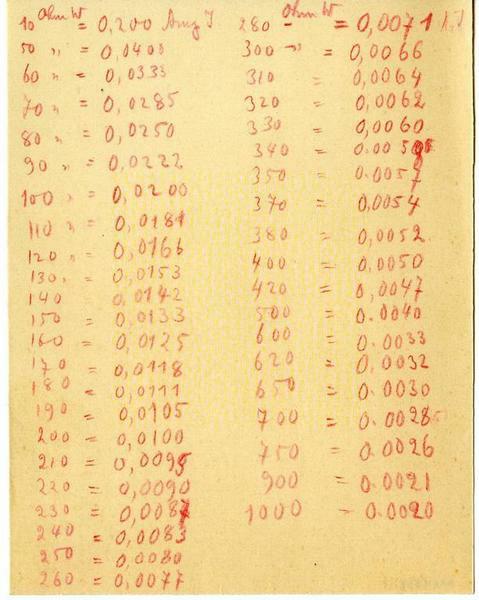 10 Ohm W = 0,200 Amp J
50 " = 0,0400
60 " = 0,0333
70 " = 0,0285
80 " = 0,0250
90 " = 0,0222
100 " = 0,0200
110 " = 0,0181
120 " = 0,0166
130 " = 0,0153
140 = 0,0142
150 = 0,0133
160 = 0,0125
170 = 0,0118
180 = 0,0111
190 = 0,0105
200 = 0,0100
210 = 0,0095
220 = 0,0090
230 = 0,0087
240 = 0,0083
250 = 0,0080
260 = 0,0077
280 Ohm W = 0,0071
300 " = 0,0066
310 = 0,0064
320 = 0,0062
330 = 0,0060
340 =
350 = 0.0057
370 = 0,0054
380 = 0,0052
400 = 0,0050
420 = 0,0047
500 = 0.0040
600 = 0.0033
620 = 0,0032
650 = 0.0030
700 = 0.0028
750 = 0.0026
900 = 0.0021
1000 - 0.0020